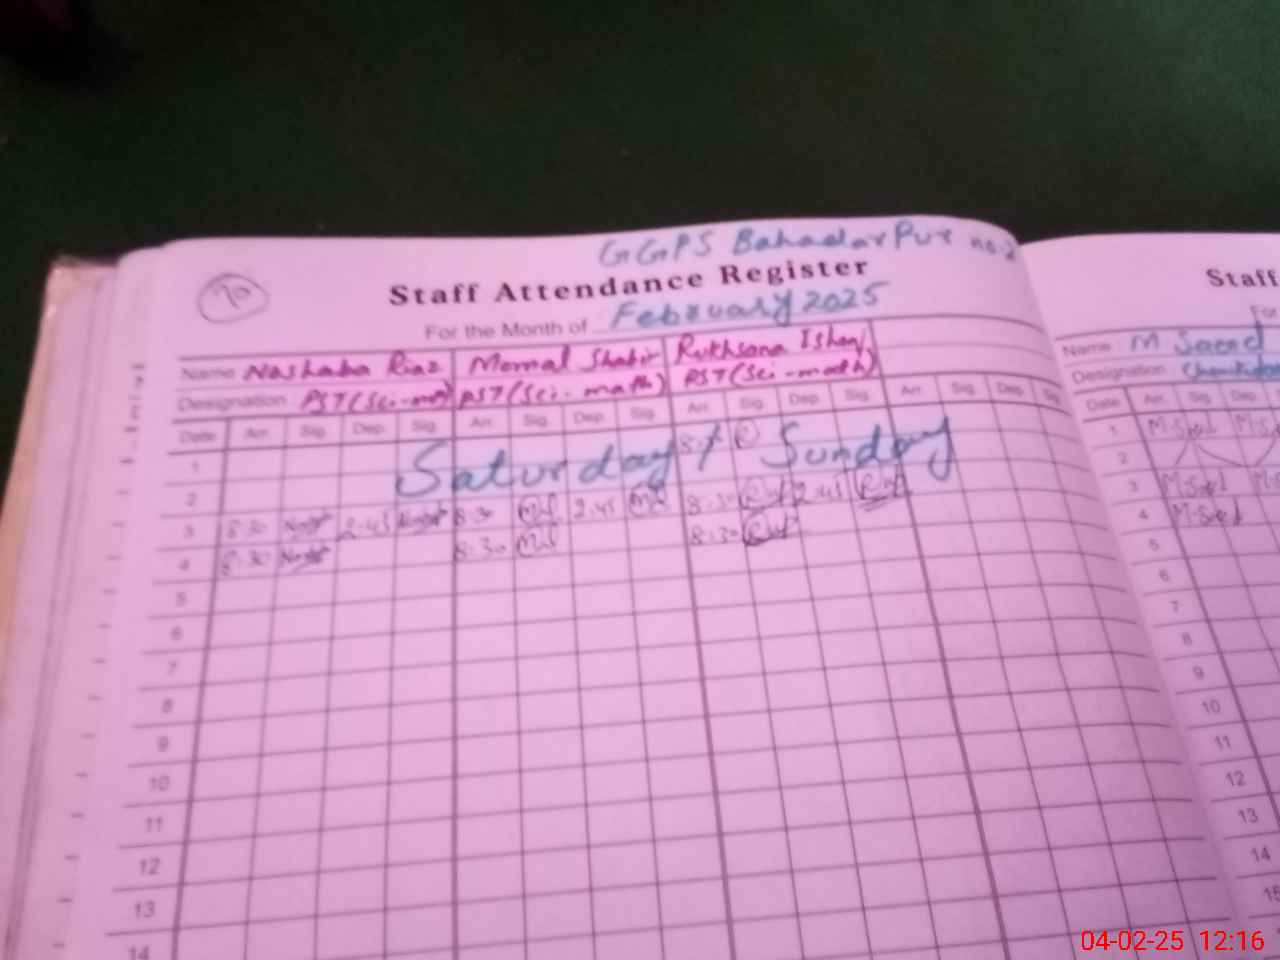 GGPS Bahadar Pur no.2
70
Staff Attendance Register
For the Month of February 2025
Name Nashaba Riaz Momal Shabir Rukhsana Ishaq
Designation PST (Sci-math) PST (Sci-math) PST (Sci-math)
Date Arr. Sig. Dep. Sig. Arr. Sig. Dep. Sig. Arr. Sig. Dep. Sig. Arr. Sig. Dep. Sig.
1
Saturday / Sunday
2
3 8:30 2:45 8:30 2:45 8:30 2:45
4 8:30 8:30 8:30
5
6
7
8
9
10
11
12
13
14
Staff
For
Name M Saeed
Designation
Date Arr. Sig. Dep.
1 M.Saeed
2
3 M.Saeed
4 M.Saeed
5
6
7
8
9
10
11
12
13
14
15
04-02-25 12:16